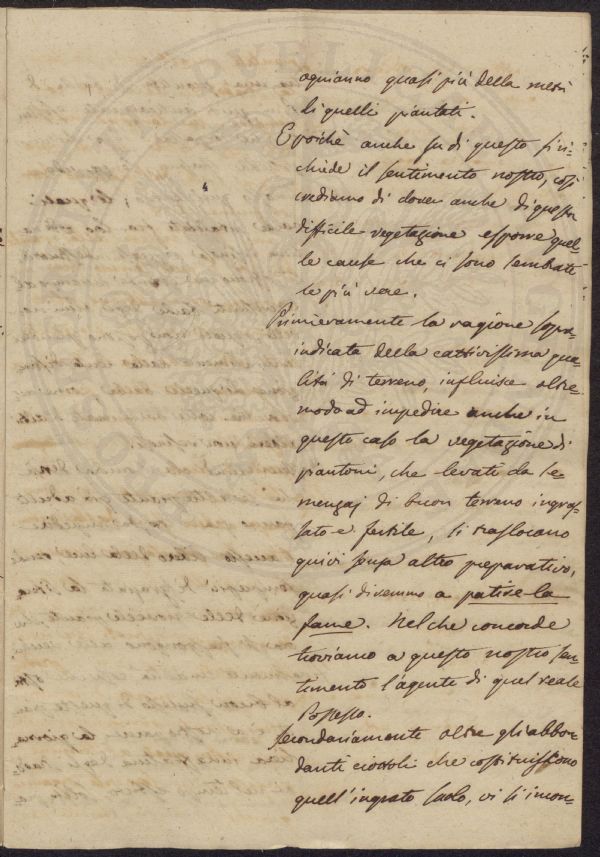 ogni anno quasi più della metà
di quelli piantati.
E poichè anche su di questo si ri-
chiede il sentimento nostro, così
crediamo di dover anche di questa
difficile vegetazione esporre quel-
le cause che ci sono sembrate
le più vere.
Primieramente la ragione sopra-
indicata della cattivissima qua-
lità di terreno, influisce oltre
modo ad impedire anche in
questo caso la vegetazione di
piantoni, che levati da se-
menzaj di buon terreno ingras-
sato e fertile, si traslocano
quivi senza altro preparativo,
quasi diremmo a patire la
fame. Nel che concorde
troviamo a questo nostro sen-
timento l'agente di quel reale
Possesso.
Secondariamente oltre gli abbon-
danti ciottoli che costituiscono
quell'ingrato suolo, vi si incon-